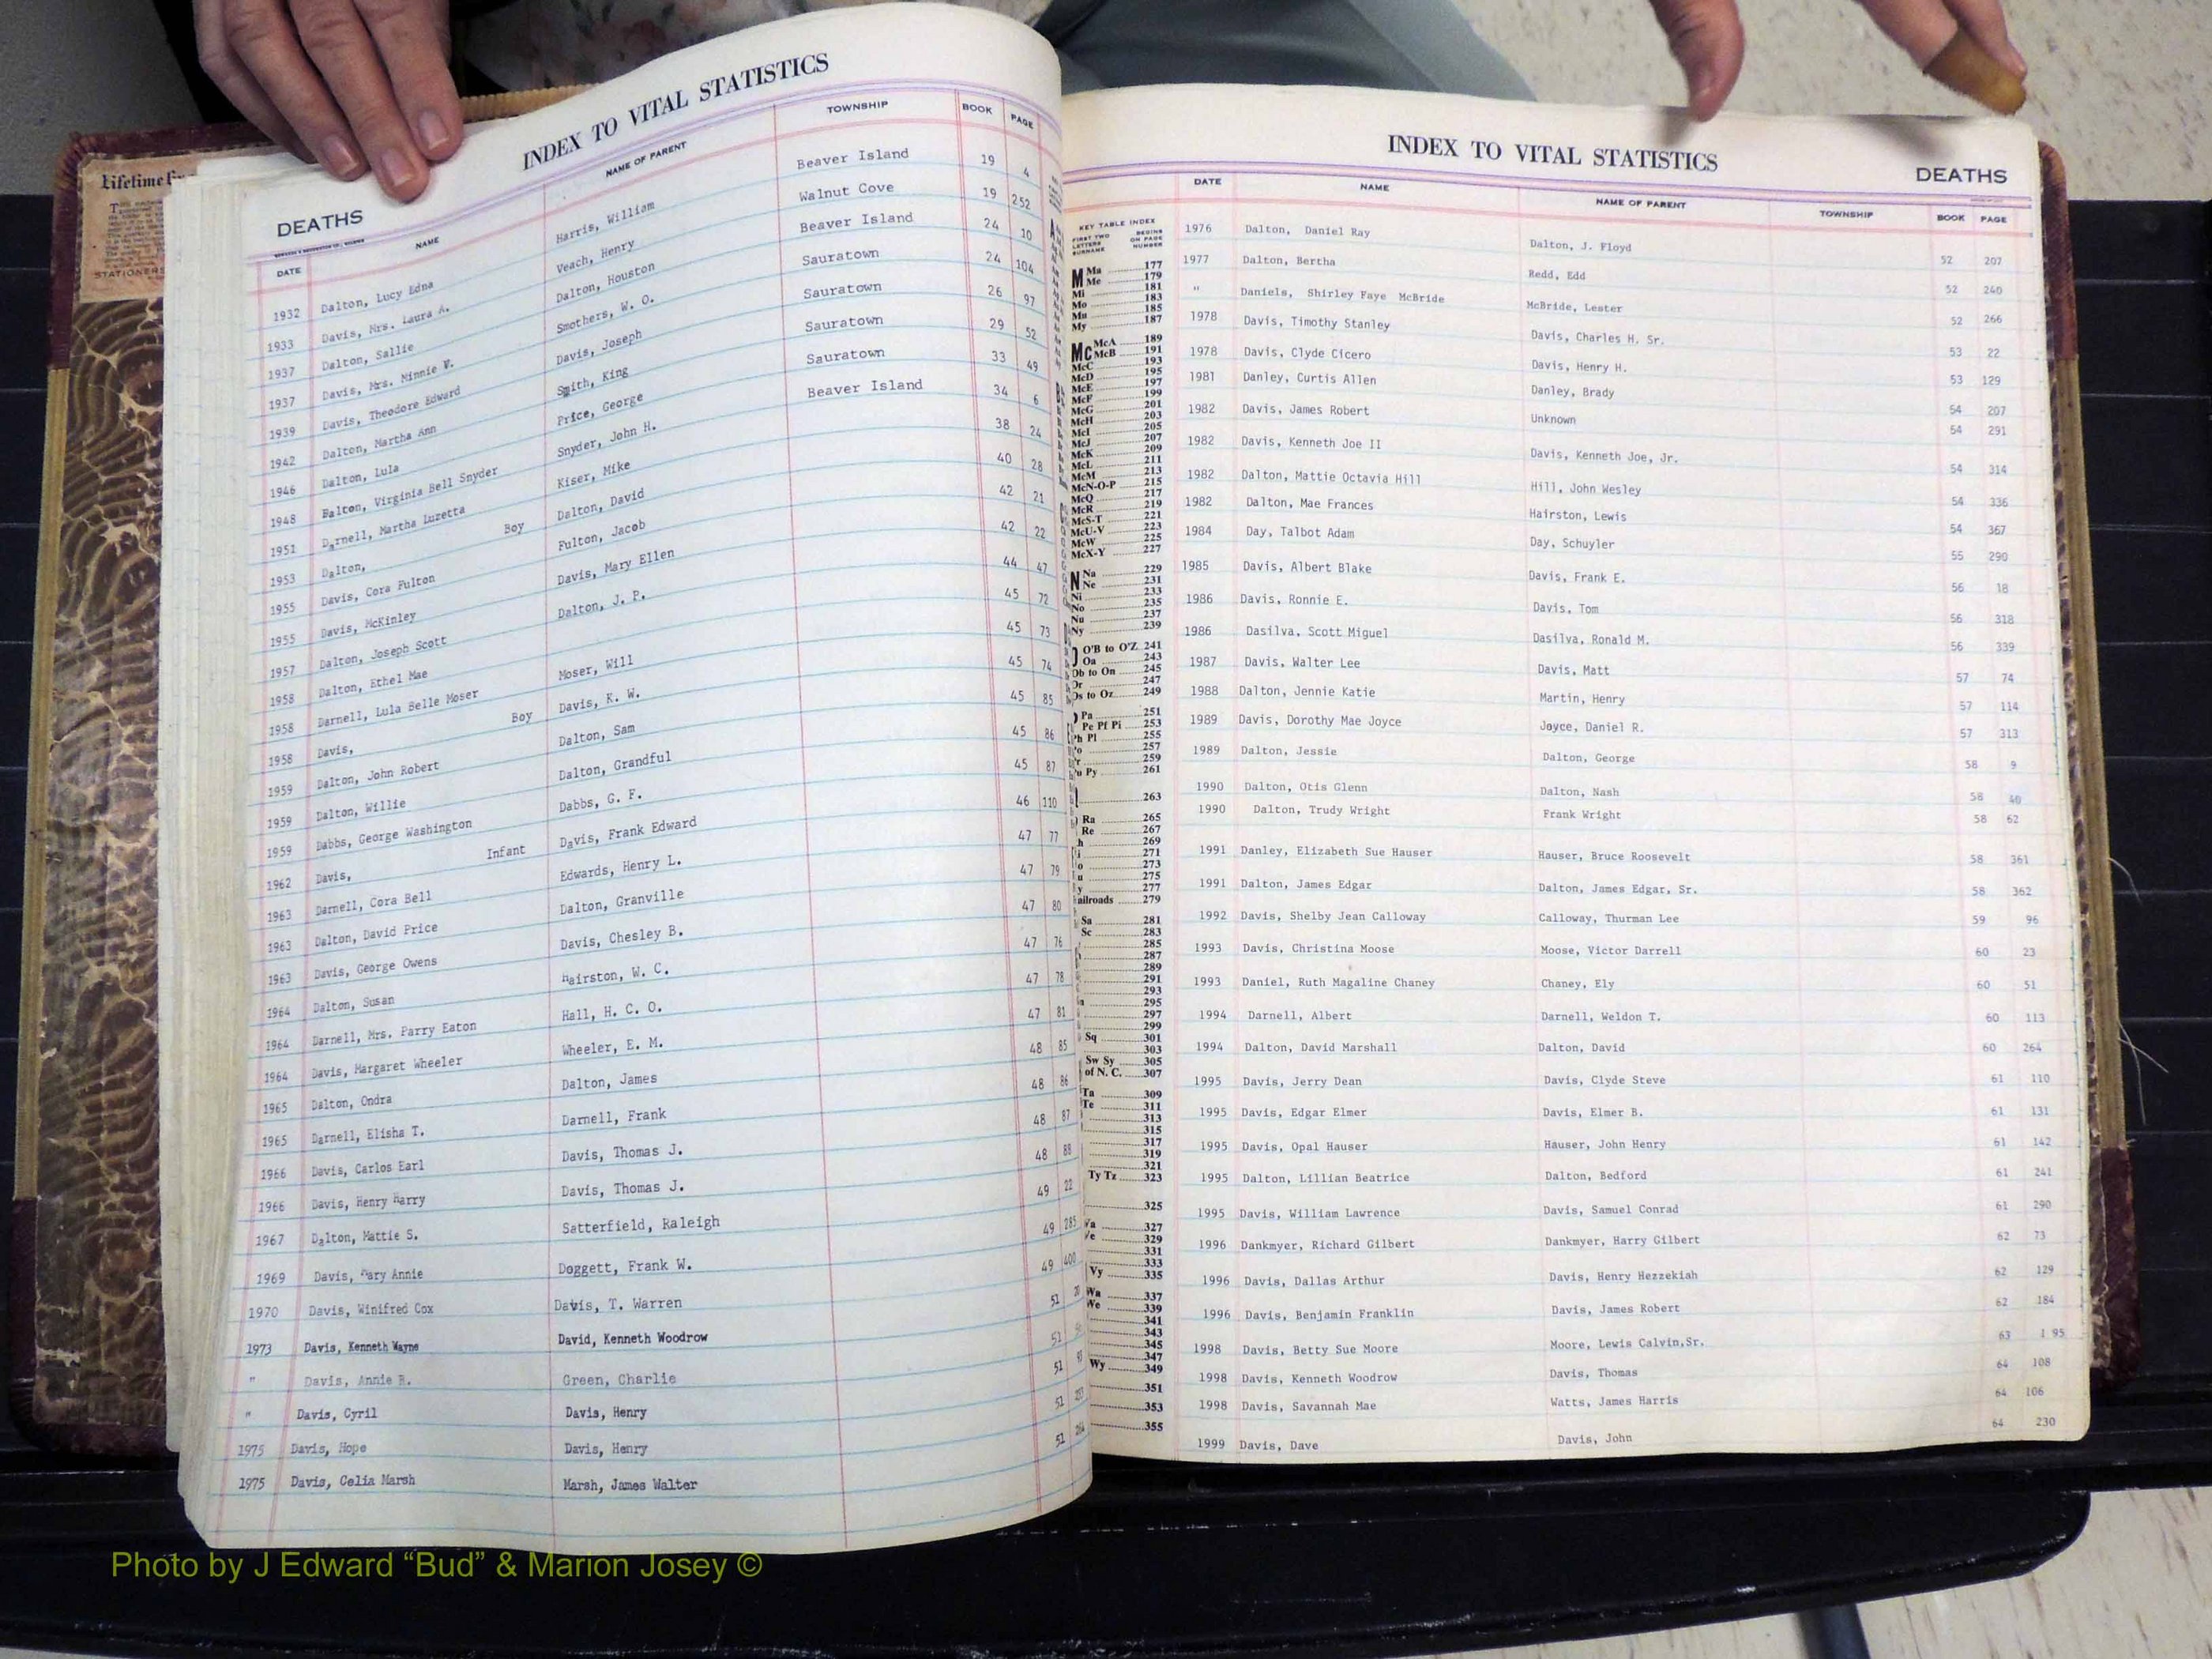 Lifetime
STATIONERS
INDEX TO VITAL STATISTICS
DEATHS
DATE NAME NAME OF PARENT TOWNSHIP BOOK PAGE
1932 Dalton, Lucy Edna Harris, William Beaver Island 19 4
1933 Davis, Mrs. Laura A. Veach, Henry Walnut Cove 19 252
1937 Dalton, Sallie Dalton, Houston Beaver Island 24 10
1937 Davis, Mrs. Minnie W. Smothers, W. O. Sauratown 24 104
1939 Davis, Theodore Edward Davis, Joseph Sauratown 26 97
1942 Dalton, Martha Ann Smith, King Sauratown 29 52
1946 Dalton, Lula Price, George Sauratown 33 49
1948 Dalton, Virginia Bell Snyder Snyder, John H. Beaver Island 34 6
1951 Darnell, Martha Luzetta Kiser, Mike 38 24
1953 Dalton, Boy Dalton, David 40 28
1955 Davis, Cora Fulton Fulton, Jacob 42 21
1955 Davis, McKinley Davis, Mary Ellen 42 22
1957 Dalton, Joseph Scott Dalton, J. P. 44 47
1958 Dalton, Ethel Mae 45 72
1958 Darnell, Lula Belle Moser Moser, Will 45 73
1958 Davis, Boy Davis, K. W. 45 74
1959 Dalton, John Robert Dalton, Sam 45 85
1959 Dalton, Willie Dalton, Grandful 45 86
1959 Dabbs, George Washington Dabbs, G. F. 45 87
1962 Davis, Infant Davis, Frank Edward 46 110
1963 Darnell, Cora Bell Edwards, Henry L. 47 77
1963 Dalton, David Price Dalton, Granville 47 79
1963 Davis, George Owens Davis, Chesley B. 47 80
1964 Dalton, Susan Hairston, W. C. 47 76
1964 Darnell, Mrs. Parry Eaton Hall, H. C. O. 47 78
1964 Davis, Margaret Wheeler Wheeler, E. M. 47 81
1965 Dalton, Ondra Dalton, James 48 85
1965 Darnell, Elisha T. Darnell, Frank 48 86
1966 Davis, Carlos Earl Davis, Thomas J. 48 87
1966 Davis, Henry Harry Davis, Thomas J. 48 88
1967 Dalton, Mattie S. Satterfield, Raleigh 49 22
1969 Davis, Mary Annie Doggett, Frank W. 49 285
1970 Davis, Winifred Cox Davis, T. Warren 49 400
1973 Davis, Kenneth Wayne David, Kenneth Woodrow 51
" Davis, Annie B. Green, Charlie 51
" Davis, Cyril Davis, Henry 51
1975 Davis, Hope Davis, Henry 51
1975 Davis, Celia Marsh Marsh, James Walter 51
KEY TABLE INDEX
FIRST TWO LETTERS SURNAME BEGINS ON PAGE NUMBER
M Ma 177
Me 179
Mi 181
Mo 183
Mu 185
My 187
Mc McA 189
McB 191
McC 193
McD 195
McE 197
McF 199
McG 201
McH 203
McI 205
McJ 207
McK 209
McL 211
McM 213
McN-O-P 215
McQ 217
McR 219
McS-T 221
McU-V 223
McW 225
McX-Y 227
N Na 229
Ne 231
Ni 233
No 235
Nu 237
Ny 239
O'B to O'Z 241
Oa 243
Ob to On 245
Or 247
Os to Oz 249
Pa 251
Pe Pf Pi 253
Ph Pl 255
257
259
Py 261
263
Ra 265
Re 267
269
271
273
275
277
Railroads 279
Sa 281
Sc 283
285
287
289
291
293
295
297
299
Sq 301
303
Sw Sy 305
of N. C. 307
Ta 309
Te 311
313
315
317
319
321
Ty Tz 323
325
Va 327
Ve 329
331
333
Vy 335
Wa 337
We 339
341
343
345
347
Wy 349
351
353
355
INDEX TO VITAL STATISTICS
DEATHS
DATE NAME NAME OF PARENT TOWNSHIP BOOK PAGE
1976 Dalton, Daniel Ray Dalton, J. Floyd 52 207
1977 Dalton, Bertha Redd, Edd 52 240
" Daniels, Shirley Faye McBride McBride, Lester 52 266
1978 Davis, Timothy Stanley Davis, Charles H. Sr. 53 22
1978 Davis, Clyde Cicero Davis, Henry H. 53 129
1981 Danley, Curtis Allen Danley, Brady 54 207
1982 Davis, James Robert Unknown 54 291
1982 Davis, Kenneth Joe II Davis, Kenneth Joe, Jr. 54 314
1982 Dalton, Mattie Octavia Hill Hill, John Wesley 54 336
1982 Dalton, Mae Frances Hairston, Lewis 54 367
1984 Day, Talbot Adam Day, Schuyler 55 290
1985 Davis, Albert Blake Davis, Frank E. 56 18
1986 Davis, Ronnie E. Davis, Tom 56 318
1986 Dasilva, Scott Miguel Dasilva, Ronald M. 56 339
1987 Davis, Walter Lee Davis, Matt 57 74
1988 Dalton, Jennie Katie Martin, Henry 57 114
1989 Davis, Dorothy Mae Joyce Joyce, Daniel R. 57 313
1989 Dalton, Jessie Dalton, George 58 9
1990 Dalton, Otis Glenn Dalton, Nash 58 40
1990 Dalton, Trudy Wright Frank Wright 58 62
1991 Danley, Elizabeth Sue Hauser Hauser, Bruce Roosevelt 58 361
1991 Dalton, James Edgar Dalton, James Edgar, Sr. 58 362
1992 Davis, Shelby Jean Calloway Calloway, Thurman Lee 59 96
1993 Davis, Christina Moose Moose, Victor Darrell 60 23
1993 Daniel, Ruth Magaline Chaney Chaney, Ely 60 51
1994 Darnell, Albert Darnell, Weldon T. 60 113
1994 Dalton, David Marshall Dalton, David 60 264
1995 Davis, Jerry Dean Davis, Clyde Steve 61 110
1995 Davis, Edgar Elmer Davis, Elmer B. 61 131
1995 Davis, Opal Hauser Hauser, John Henry 61 142
1995 Dalton, Lillian Beatrice Dalton, Bedford 61 241
1995 Davis, William Lawrence Davis, Samuel Conrad 61 290
1996 Dankmyer, Richard Gilbert Dankmyer, Harry Gilbert 62 73
1996 Davis, Dallas Arthur Davis, Henry Hezzekiah 62 129
1996 Davis, Benjamin Franklin Davis, James Robert 62 184
1998 Davis, Betty Sue Moore Moore, Lewis Calvin,Sr. 63 1 95
1998 Davis, Kenneth Woodrow Davis, Thomas 64 108
1998 Davis, Savannah Mae Watts, James Harris 64 106
1999 Davis, Dave Davis, John 64 230
Photo by J Edward “Bud” & Marion Josey ©